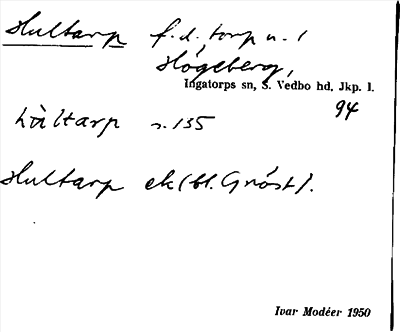 Hultarp f.d. torp u. 1
Högeberg,
Ingatorps sn, S. Vedbo hd, Jkp. l.
94
hàltarp s. 135
Hultarp ek (bl. Gnöst).
Ivar Modéer 1950